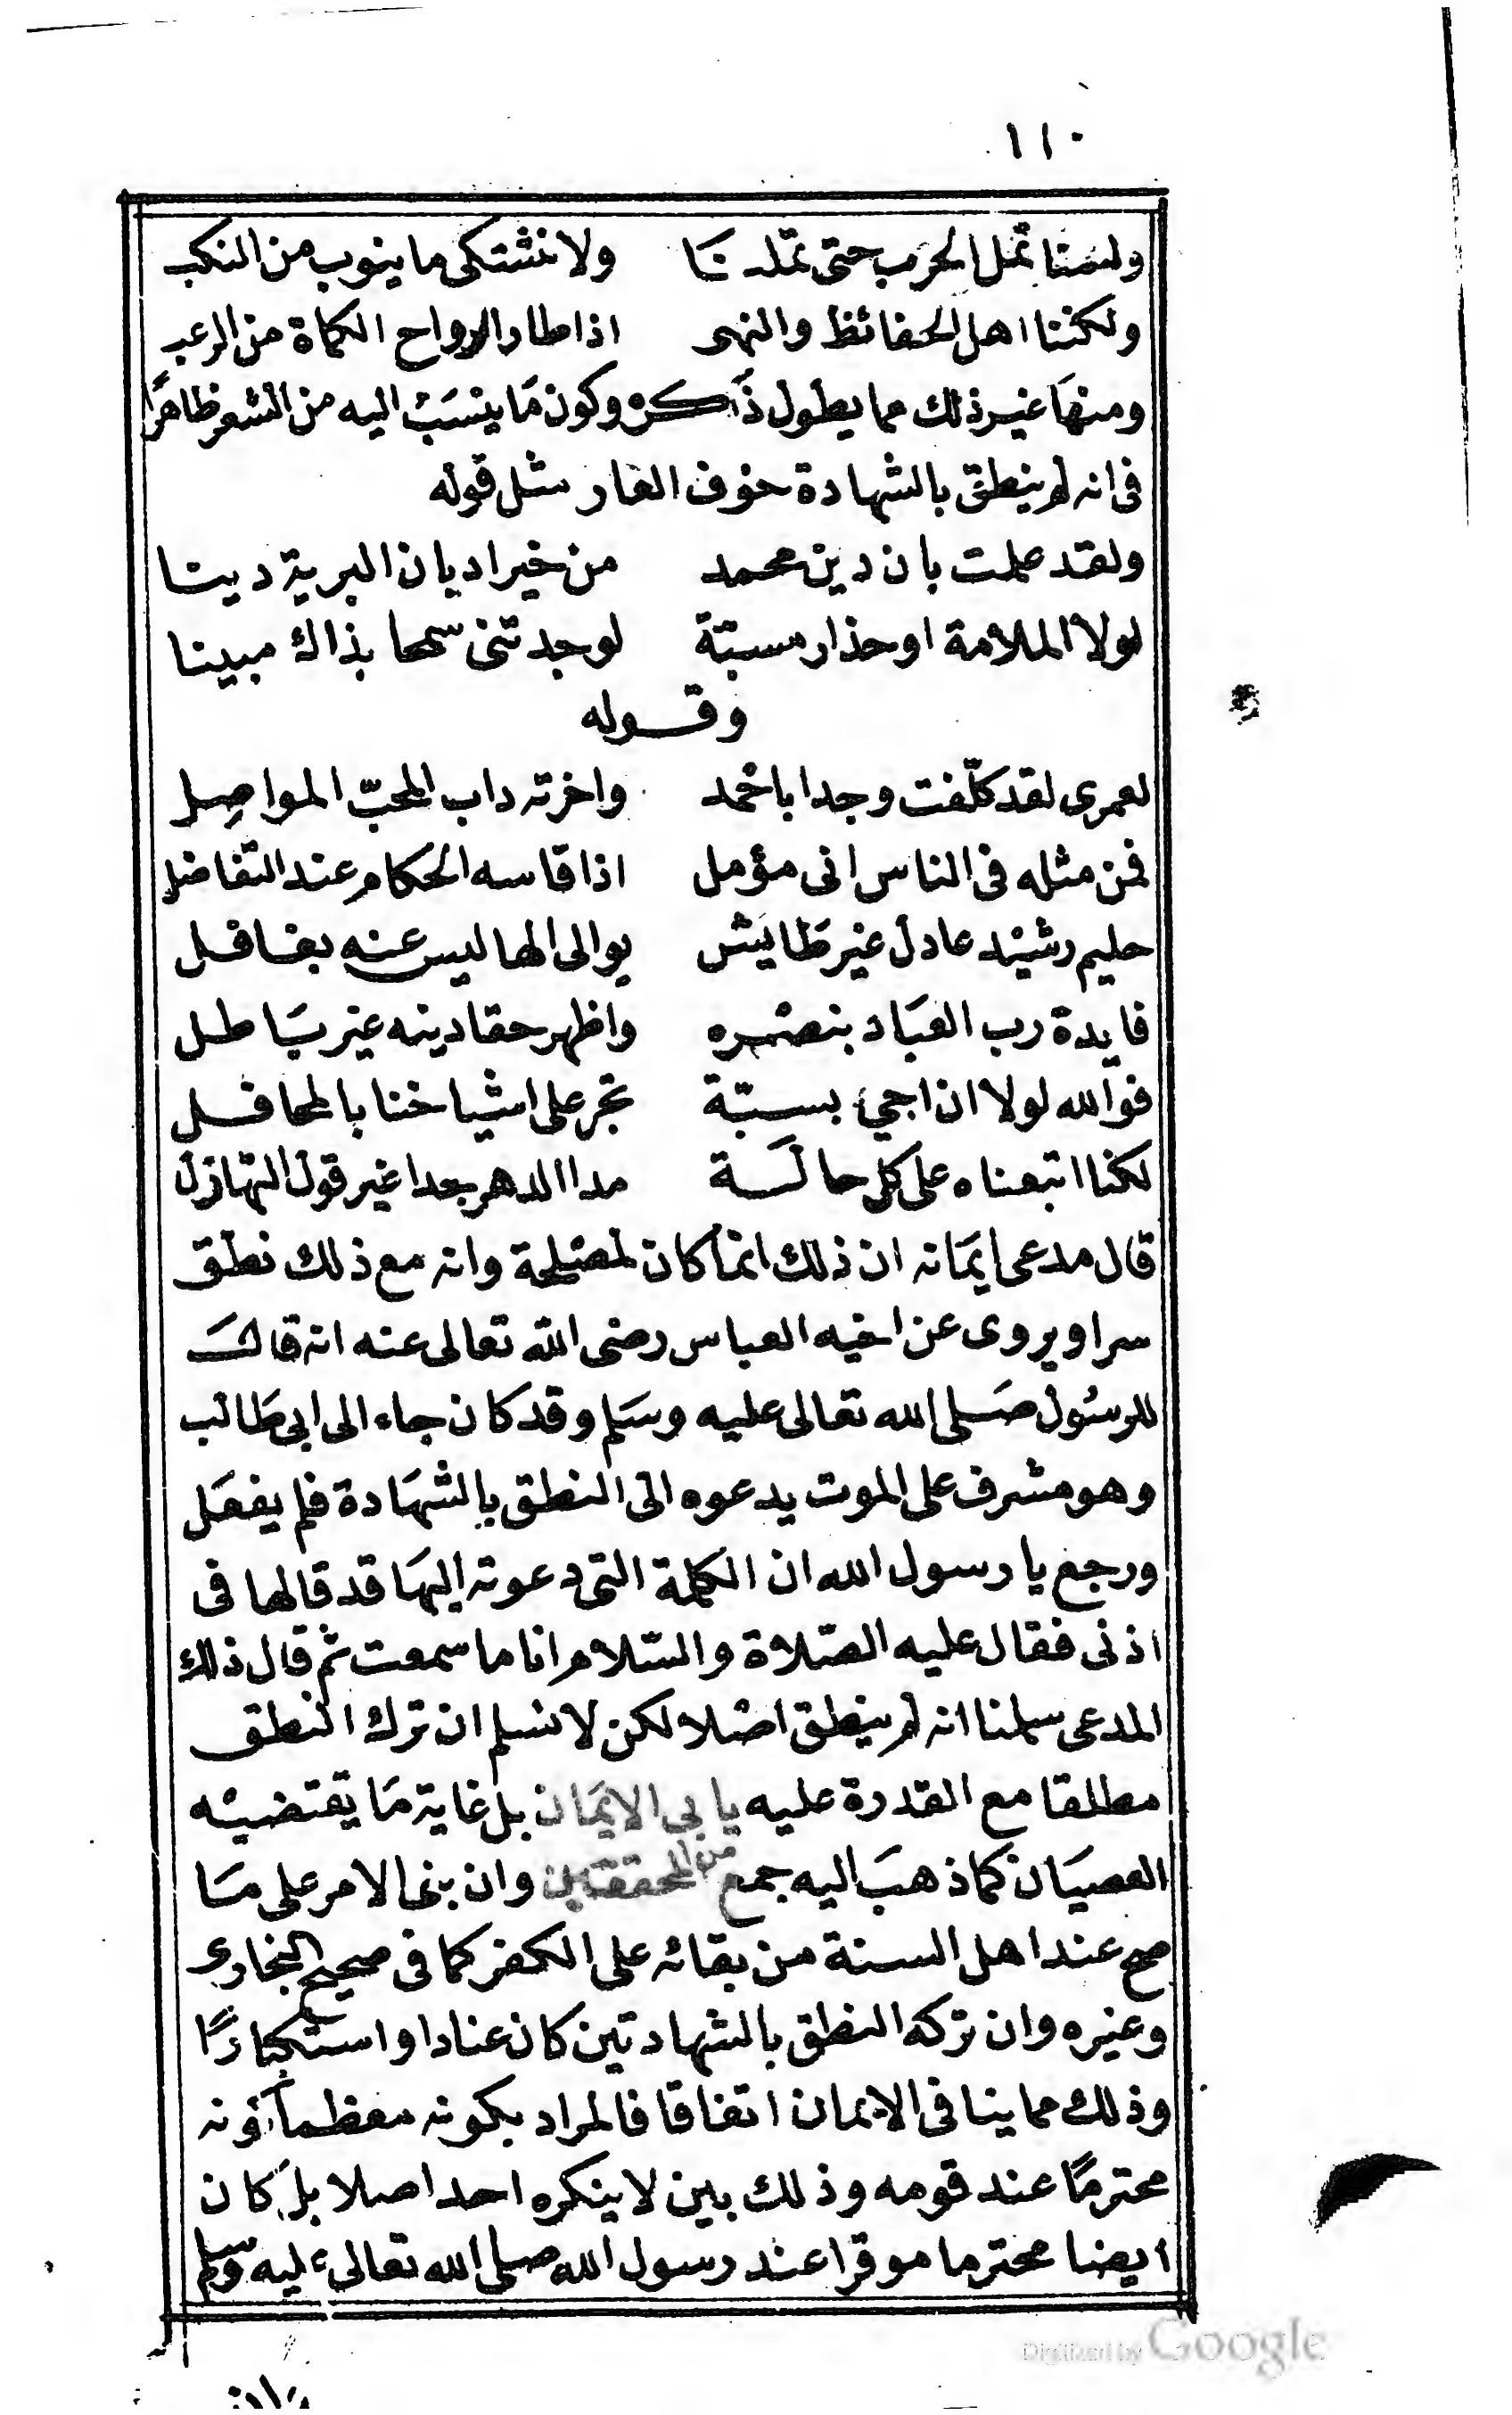 ١١٠
ولسنا نمل الحرب حتى تملنا ولا نشتكى ما ينوب من النكب
ولكننا اهل الحفائظ والنهى اذا طار ارواح الكماة من الرعب
ومنها غير ذلك مما يطول ذكره وكون ما ينسب اليه من الشعر ظاهرًا
فى انه لم ينطق بالشهادة خوف العار مثل قوله
ولقد علمت بان دين محمد من خير اديان البرية دينا
لولا الملامة او حذار مسبّة لوجدتنى سمحا بذاك مبينا
وقوله
لعمرى لقد كلّفت وجدا باحمد واخوته داب المحبّ المواصِل
فمن مثله فى الناس انى مؤمل اذا قاسه الحكام عند التفاضل
حليم رشيد عادل غير طايش يوالى الها ليس عنه بغافل
فايدة رب العباد بنصره واظهر حقا دينه غير باطل
فوالله لولا ان اجئ بسبّة تجر على اشياخنا بالمحافل
لكنا اتبعناه على كل حالة مدا الدهر جدا غير قول التهازل
قال مدعى ايمانه ان ذلك انما كان لمصلحة وانه مع ذلك نطق
سرا ويروى عن اخيه العباس رضى الله تعالى عنه انه قال
للرسول صلى الله تعالى عليه وسلم وقد كان جاء الى ابى طالب
وهو مشرف على الموت يدعوه الى النطق بالشهادة فلم يفعل
ورجع يا رسول الله ان الكلمة التى دعوته اليها قد قالها فى
اذنى فقال عليه الصّلاة والسّلام انا ما سمعت ثم قال ذلك
المدعى سلمنا انه لم ينطق اصلا لكن لا نسلم ان ترك النطق
مطلقا مع القدرة عليه يابى الايمان بل غاية ما يقتضيه
العصيان كما ذهب اليه جمع من المحققين وان بنى الامر على ما
صح عند اهل السنة من بقائه على الكفر كما فى صحيح البخارى
وغيره وان تركه النطق بالشهادتين كان عنادا واستكبارًا
وذلك مما ينافى الايمان اتفاقا فالمراد بكونه معظما كونه
محترمًا عند قومه وذلك بين لا ينكره احد اصلا بل كان
ايضا محترما موقرا عند رسول الله صلى الله تعالى عليه وسلم
وان
Digitized by Google